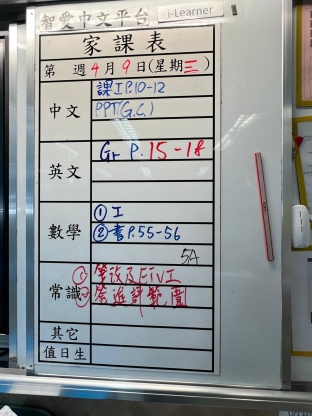 智愛中文平台 i-Learner
家課表
第 週 4 月 9 日(星期三)
中文 課工P.10-12
PPT(G.C.)
英文 Gr P.15-18
數學 ①工
②書P.55-56
5A
常識 ①筆改及ETV工
②常進評範圍
其它
值日生